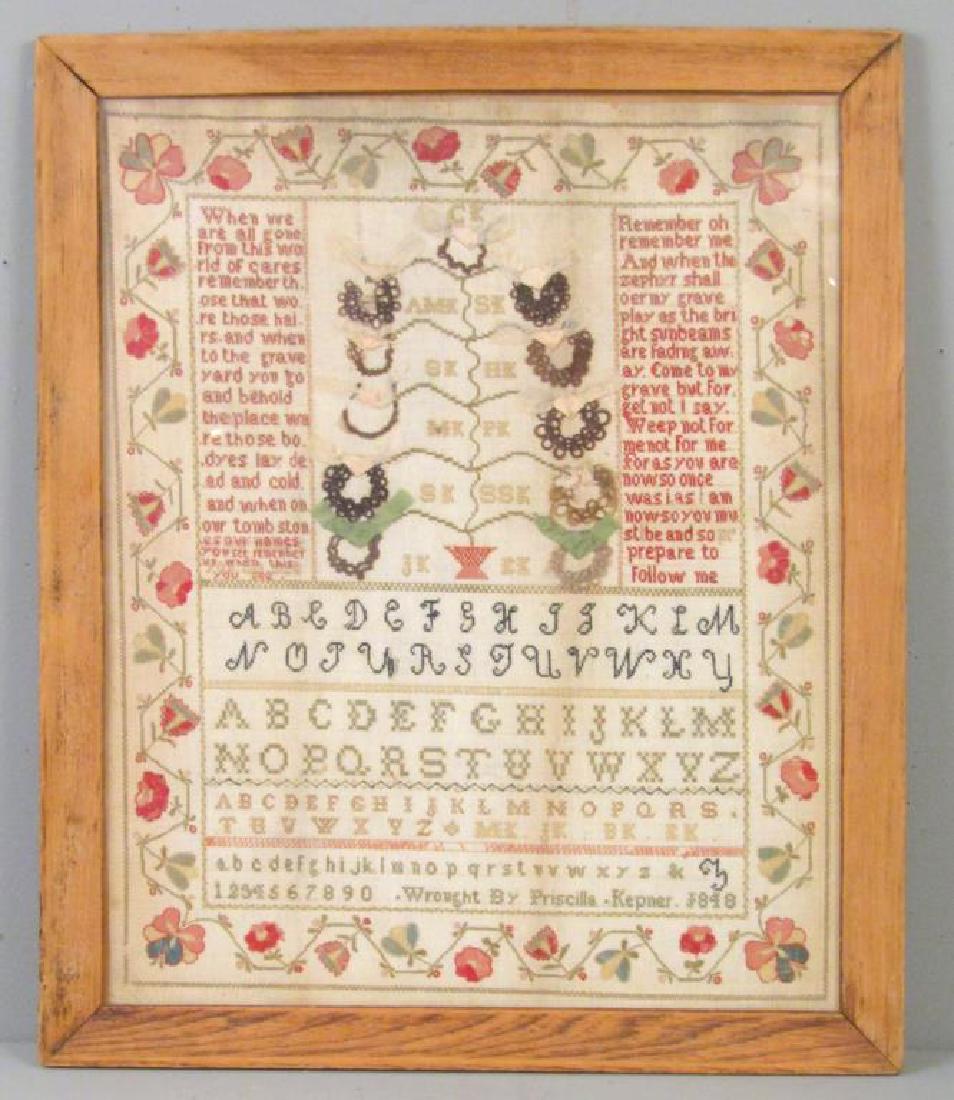 When we
are all gone
from this wo
rld of cares
remember th.
ose that wo
re those hai.
rs. and when
to the grave
yard you go
and behold
the place we
re those bo.
dyes lay de
ad and cold.
and when on
our tomb ston
es our names
you see remember
us when this
you see
CK
AMK SK
SK HK
MK PK
SK SSK
JK EK
Remember oh
remember me
And when the
zephyr shall
oer my grave
play as the bri
ght sunbeams
are fading aw.
ay. Come to my
grave but for.
get not I say.
Weep not For
me not for me
For as you are
now so once
was i as I am
now so you mu
st be and so
prepare to
Follow me
A B C D E F G H I J K L M
N O P Q R S T U V W X Y
A B C D E F G H I J K L M
N O P Q R S T U V W X Y Z
A B C D E F G H I J K L M N O P Q R S .
T U V W X Y Z MK JK BK EK
a b c d e f g h i j k l m n o p q r s t u v w x y z & Z
1 2 3 4 5 6 7 8 9 0 . Wrought By Priscilla . Kepner. 1848